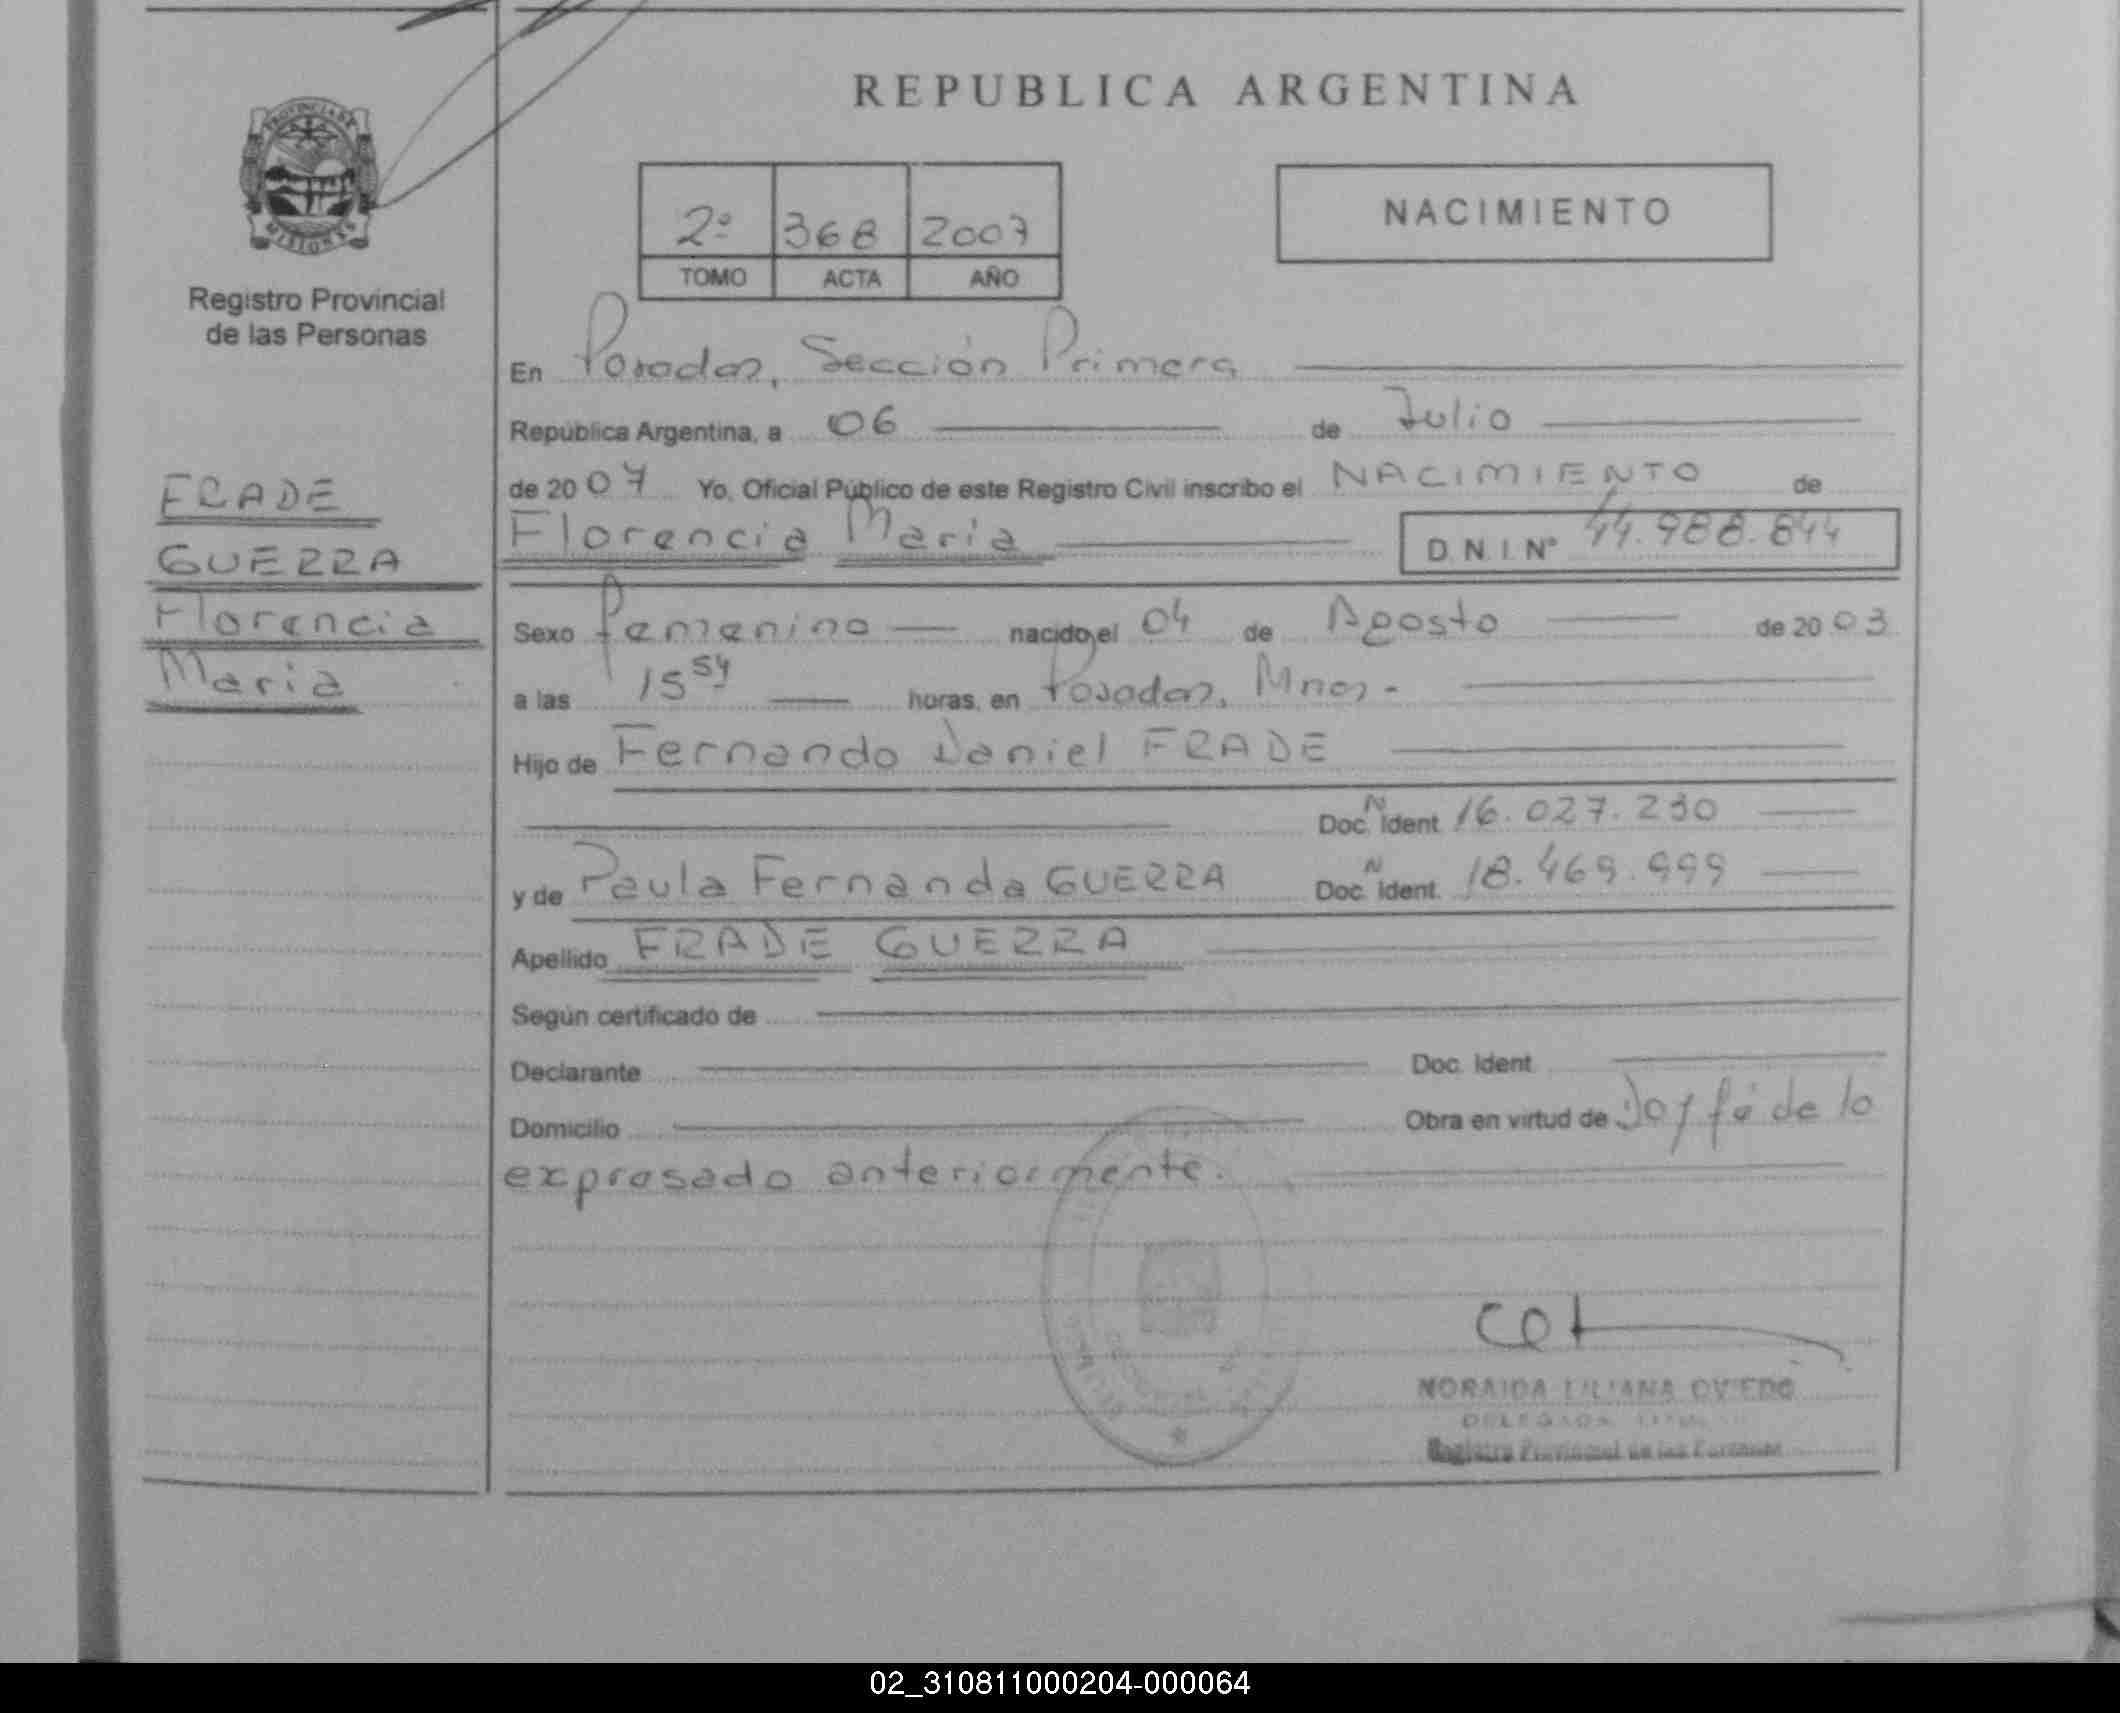 PROVINCIA DE
MISIONES
Registro Provincial
de las Personas
FRADE
GUERRA
Florencia
Maria
REPUBLICA ARGENTINA
2º 368 2007
TOMO ACTA AÑO
NACIMIENTO
En Posadas, Sección Primera
República Argentina, a 06 de Julio
de 2007 Yo, Oficial Público de este Registro Civil inscribo el NACIMIENTO de
Florencia Maria D.N.I. Nº 44.988.844
Sexo femenino nacido el 04 de Agosto de 2003
a las 15 54 horas, en Posadas, Mnes.
Hijo de Fernando Daniel FRADE
Doc. N Ident. 16.027.230
y de Paula Fernanda GUERRA Doc. N Ident. 18.469.999
Apellido FRADE GUERRA
Según certificado de
Declarante Doc. Ident.
Domicilio Obra en virtud de Doy fé de lo
expresado anteriormente.
NORAIDA LILIANA OVIEDO
DELEGADA
Registro Provincial de las Personas
02_310811000204-000064